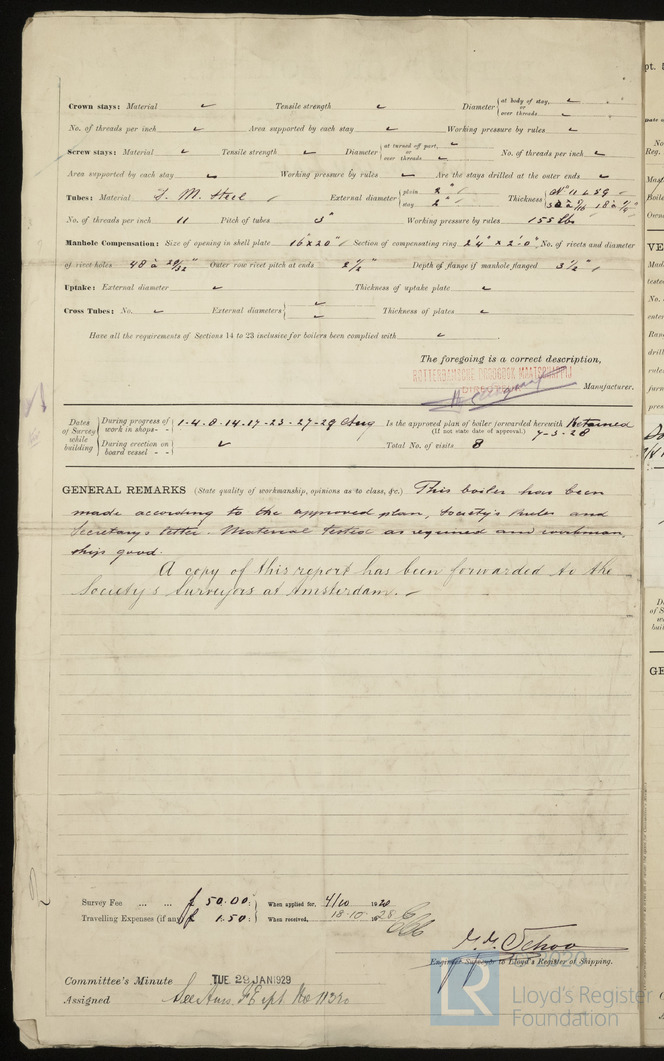 Crown stays: Material ✓ Tensile strength ✓ Diameter { at body of stay, ✓ or over threads ✓
No. of threads per inch ✓ Area supported by each stay ✓ Working pressure by rules ✓
Screw stays: Material ✓ Tensile strength ✓ Diameter { at turned off part, ✓ or over threads ✓ No. of threads per inch ✓
Area supported by each stay ✓ Working pressure by rules ✓ Are the stays drilled at the outer ends ✓
Tubes: Material S. M. Steel External diameter { plain 2" stay 2" Thickness { No 11 &
No. of threads per inch 11 Pitch of tubes 3" Working pressure by rules 155 lbs
Manhole Compensation: Size of opening in shell plate 16" x 20" Section of compensating ring 2'4" x 2'0" No. of rivets and diameter
of rivet holes 48 à 29/32" Outer row rivet pitch at ends 2 1/2" Depth of flange if manhole flanged 3 1/2"
Uptake: External diameter ✓ Thickness of uptake plate ✓
Cross Tubes: No. ✓ External diameters { ✓ ✓ Thickness of plates ✓
Have all the requirements of Sections 14 to 23 inclusive for boilers been complied with ✓
The foregoing is a correct description,
ROTTERDAMSCHE DROOGDOK MAATSCHAPPIJ
Manufacturer.
Dates of Survey while building { During progress of work in shops - - { 1-4-8-14-17-23-27-29 Aug Is the approved plan of boiler forwarded herewith Retained
(If not state date of approval.) 7-3-28
During erection on board vessel - - { ✓ Total No. of visits 8
GENERAL REMARKS (State quality of workmanship, opinions as to class, &c.) This boiler has been
made according to the approved plan, Society's Rules and
Secretary's letter. Material tested as required and workman,
ship good.
A copy of this report has been forwarded to the
Society's Surveyors at Amsterdam. –
Survey Fee ... ... f 50.00 : When applied for, 4/10 19
Travelling Expenses (if any) f 1.50 : When received, 18.10 1928
Schoo
Engineer Surveyor to Lloyd's Register of Shipping.
Committee's Minute TUE. 29 JAN 1929
Assigned See Ams. F.E. rpt No
LR Lloyd's Register
Foundation